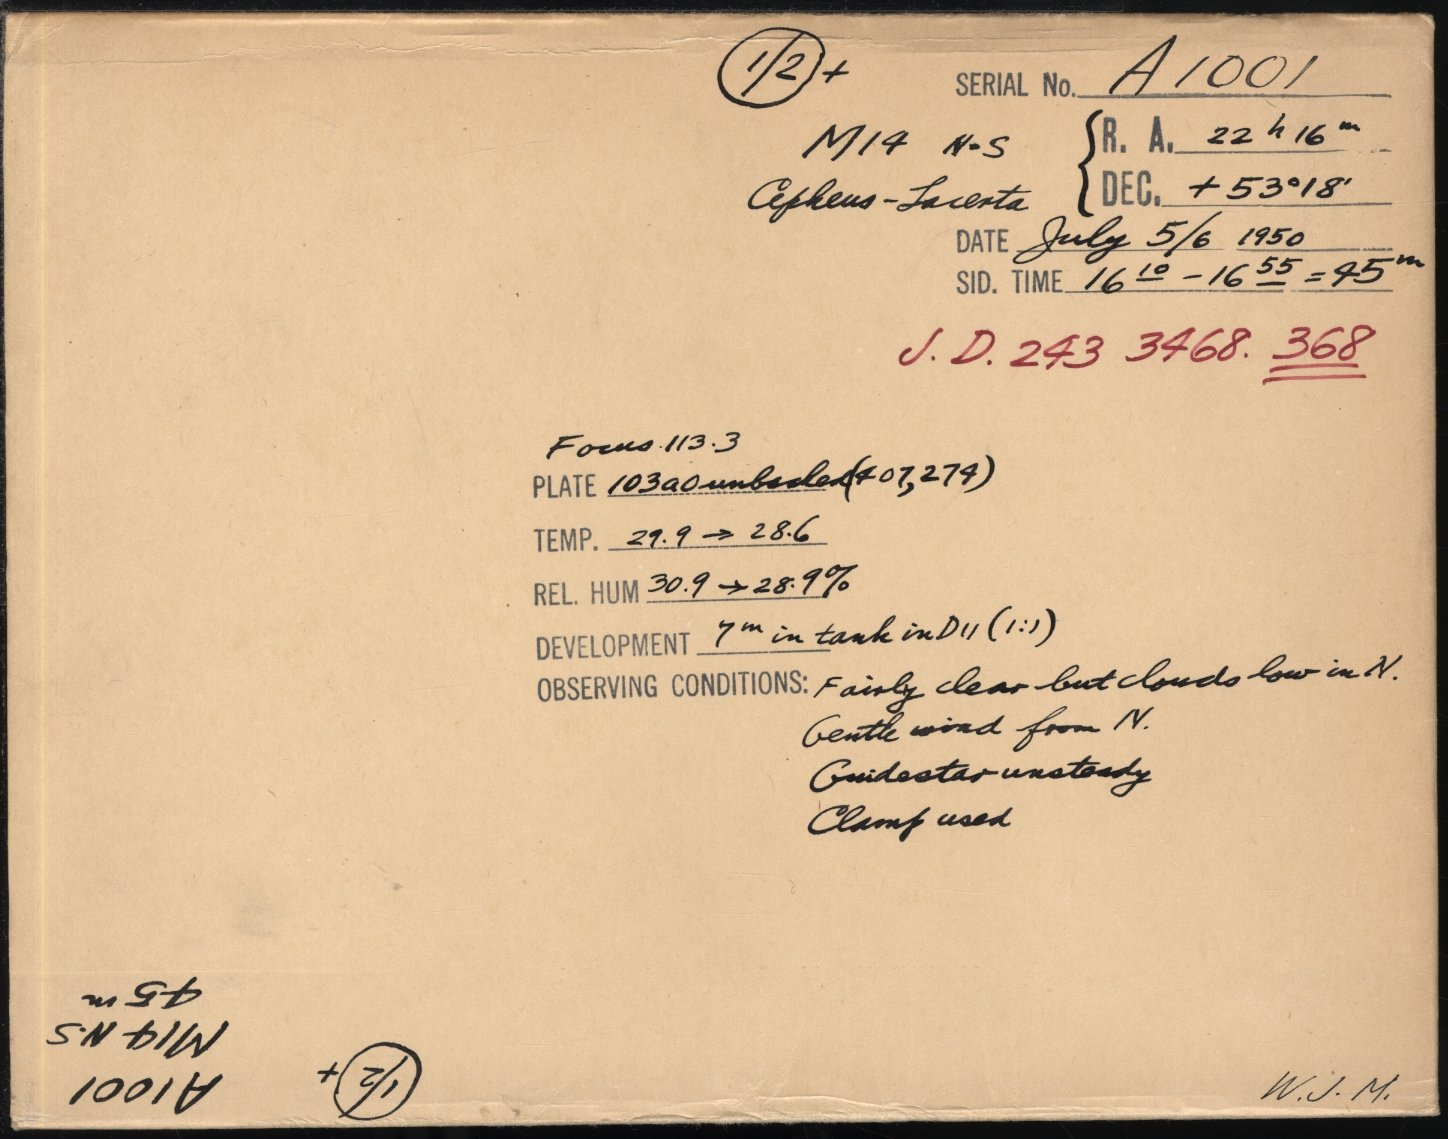 1/2 +
SERIAL No. A1001
M14 N-S
R. A. 22 h 16 m
Cepheus-Lacerta
DEC. +53°18'
DATE July 5/6 1950
SID. TIME 16 10 - 16 55 = 45 m
J. D. 243 3468. 368
Focus 113.3
PLATE 103aO unbacked (407,274)
TEMP. 29.9 → 28.6
REL. HUM 30.9 → 28.9%
DEVELOPMENT 7 m in tank in D11 (1:1)
OBSERVING CONDITIONS: Fairly clear but clouds low in N.
Gentle wind from N.
Guidestar unsteady
Clamp used
A1001
M14 N-S
45 m
1/2 +
W. J. M.